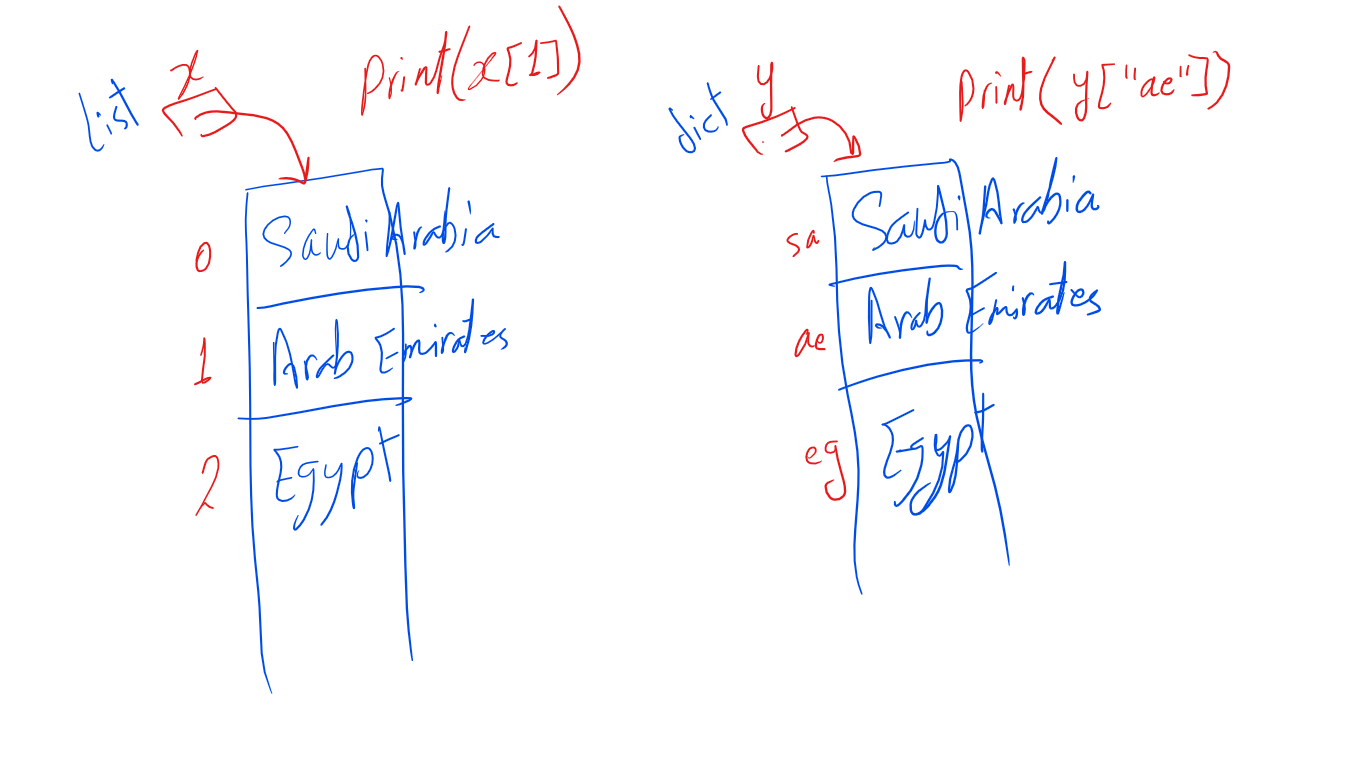 list
x
Print(x[1])
0 Saudi Arabia
1 Arab Emirates
2 Egypt
dict
y
Print(y["ae"])
sa Saudi Arabia
ae Arab Emirates
eg Egypt